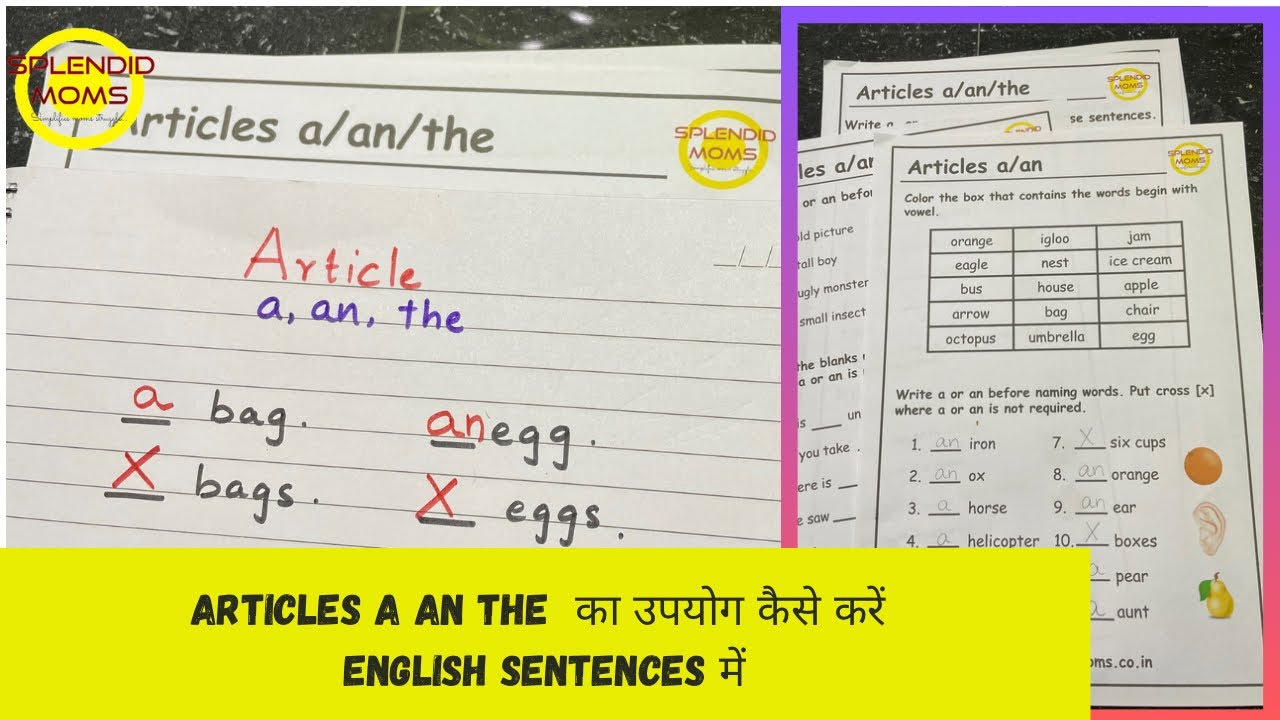 SPLENDID
MOMS
Simplifies moms struggle...
Articles a/an/the
SPLENDID
MOMS
Article
a, an, the
a bag.
an egg.
X bags.
X eggs.
Articles a/an/the
SPLENDID
MOMS
Write a an
se sentences.
les a/an
or an befor
old picture
tall boy
ugly monster
small insect
the blanks
a or an is
is ___ un
you take
ere is ___
e saw ___
Articles a/an
SPLENDID
MOMS
Color the box that contains the words begin with
vowel.
orange igloo jam
eagle nest ice cream
bus house apple
arrow bag chair
octopus umbrella egg
Write a or an before naming words. Put cross [x]
where a or an is not required.
1. an iron
2. an ox
3. a horse
4. a helicopter
7. X six cups
8. an orange
9. an ear
10. X boxes
a pear
a aunt
oms.co.in
ARTICLES A AN THE का उपयोग कैसे करें
ENGLISH SENTENCES में